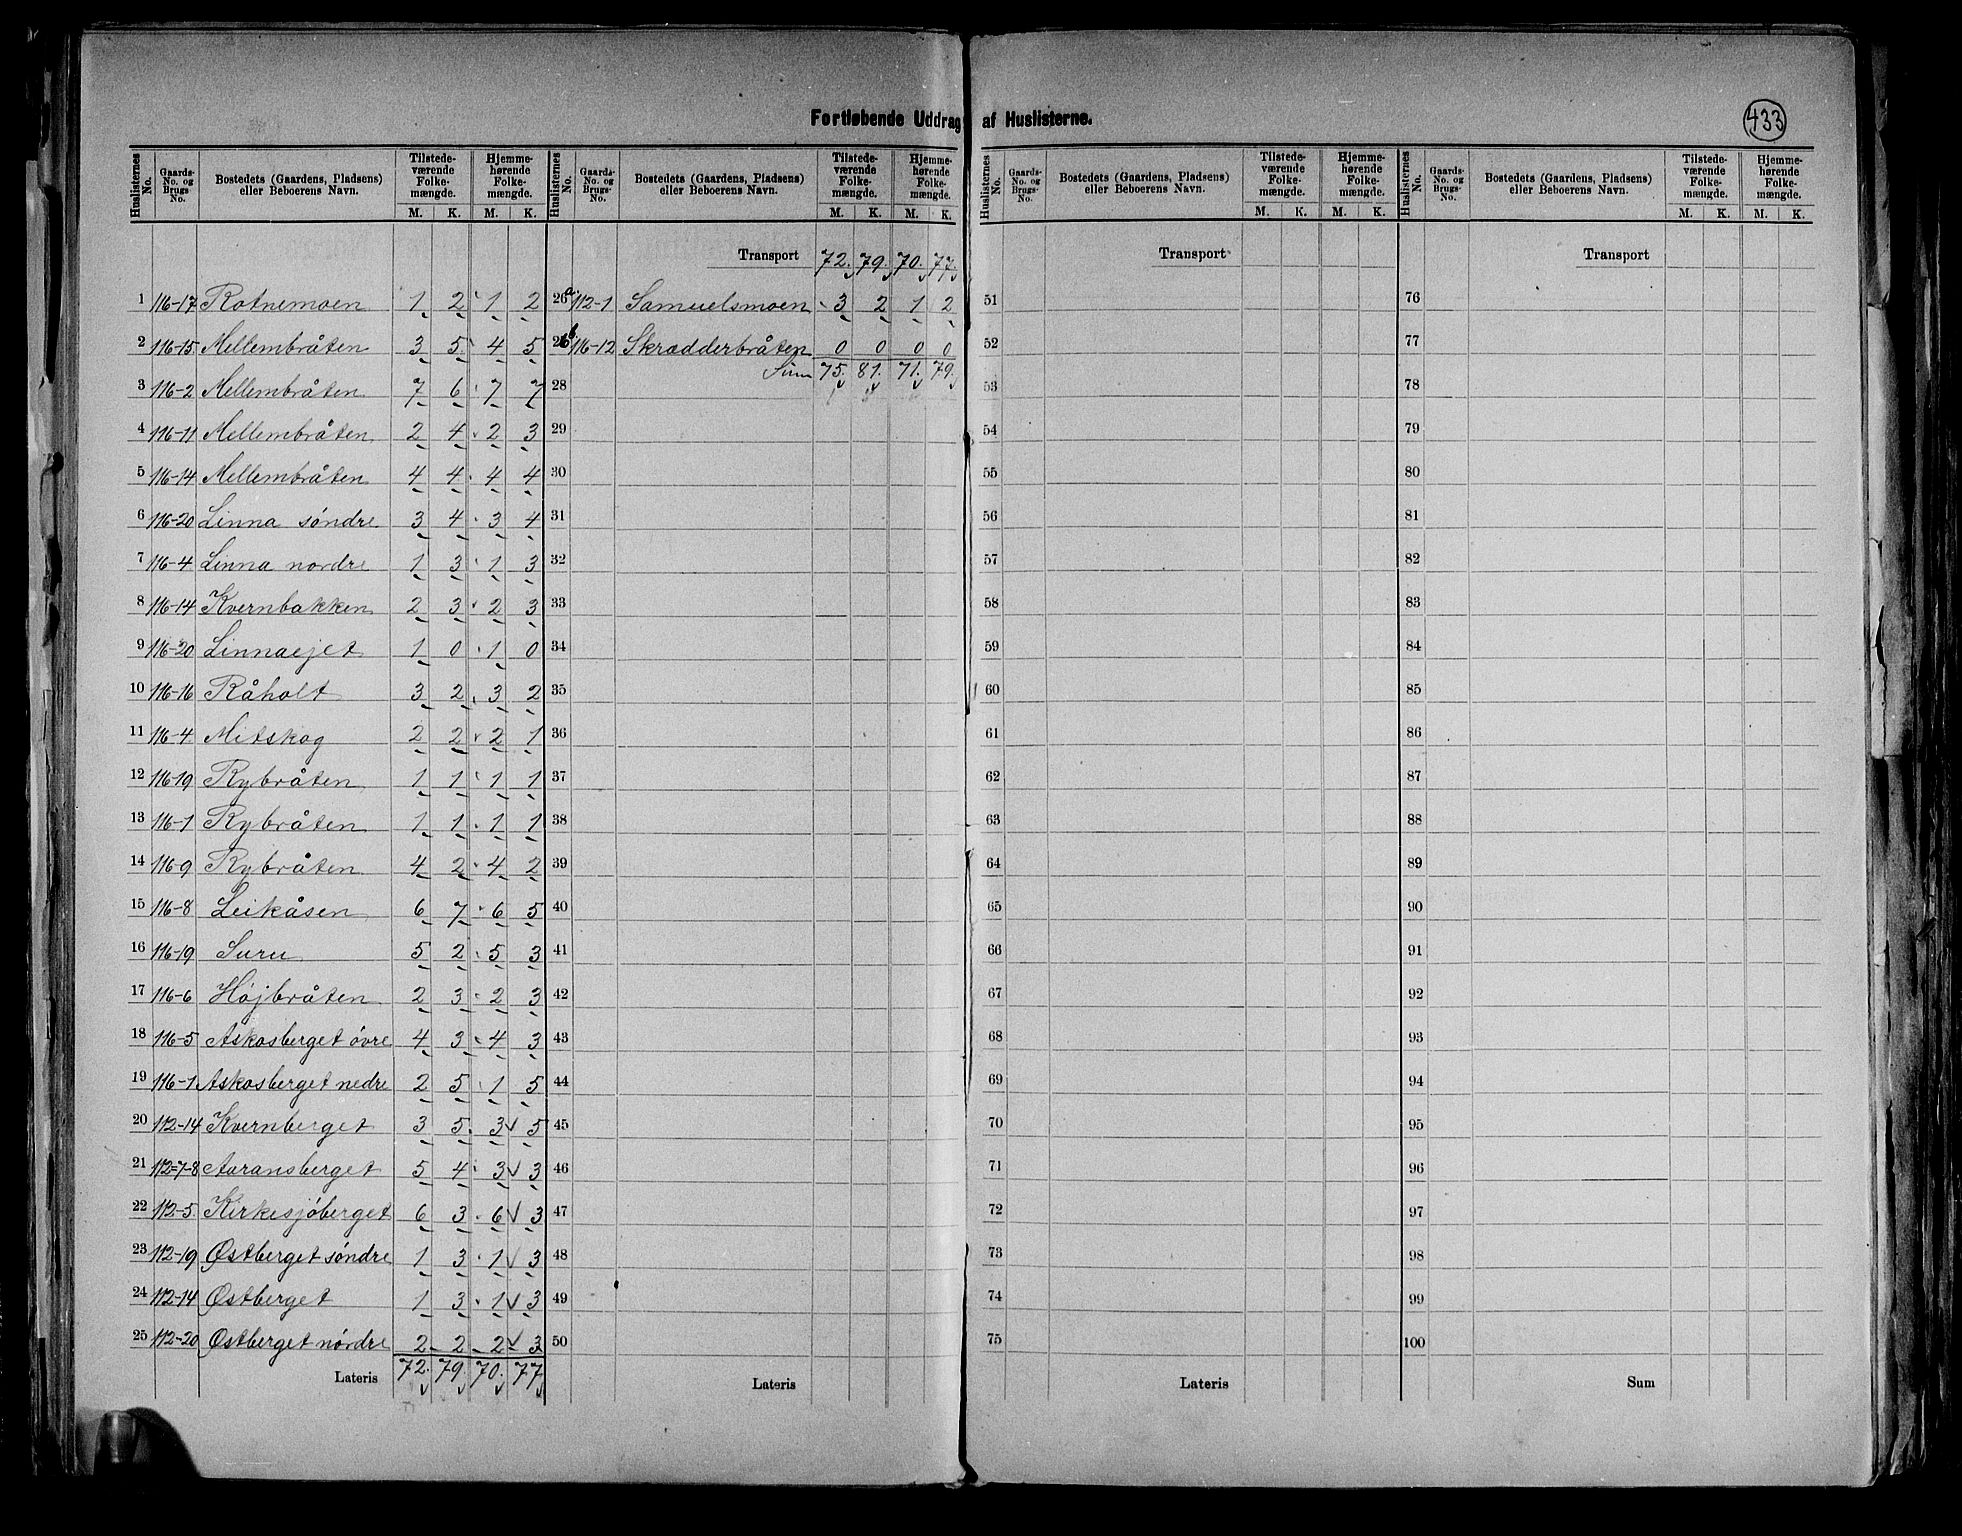 Fortløbende Uddrag af Huslisterne.
433
Huslisternes No. | Gaards-No. og Brugs-No. | Bostedets (Gaardens, Pladsens) eller Beboerens Navn. | Tilstedeværende Folkemængde. M. K. | Hjemmehørende Folkemængde. M. K.
1 116-17 Rotnemoen 1 2 1 2
2 116-15 Mellembråten 3 5 4 5
3 116-2 Mellembråten 7 6 7 7
4 116-11 Mellembråten 2 4 2 3
5 116-14 Mellembråten 4 4 4 4
6 116-20 Linna søndre 3 4 3 4
7 116-4 Linna nordre 1 3 1 3
8 116-14 Kvernbakken 2 3 2 3
9 116-20 Linnaejet 1 0 1 0
10 116-16 Råholt 3 2 3 2
11 116-4 Mitskog 2 2 2 1
12 116-19 Rybråten 1 1 1 1
13 116-1 Rybråten 1 1 1 1
14 116-9 Rybråten 4 2 4 2
15 116-8 Leikåsen 6 7 6 5
16 116-19 Suru 5 2 5 3
17 116-6 Højbråten 2 3 2 3
18 116-5 Askosberget øvre 4 3 4 3
19 116-1 Askosberget nedre 2 5 1 5
20 112-14 Kvernberget 3 5 3 5
21 112=7-8 Aaransberget 5 4 3 3
22 112-5 Kirkesjøberget 6 3 6 3
23 112-19 Østberget søndre 1 3 1 3
24 112-14 Østberget 1 3 1 3
25 112-20 Østberget nørdre 2 2 2 3
Lateris 72. 79. 70. 77
Huslisternes No. | Gaards-No. og Brugs-No. | Bostedets (Gaardens, Pladsens) eller Beboerens Navn. | Tilstedeværende Folkemængde. M. K. | Hjemmehørende Folkemængde. M. K.
Transport 72. 79. 70. 77.
26 a. 112-1 Samuelsmoen 3 2 1 2
26 b. 116-12 Skrædderbråten 0 0 0 0
Sum 75. 81. 71. 79.
28
29
30
31
32
33
34
35
36
37
38
39
40
41
42
43
44
45
46
47
48
49
50
Lateris
Huslisternes No. | Gaards-No. og Brugs-No. | Bostedets (Gaardens, Pladsens) eller Beboerens Navn. | Tilstedeværende Folkemængde. M. K. | Hjemmehørende Folkemængde. M. K.
Transport
51
52
53
54
55
56
57
58
59
60
61
62
63
64
65
66
67
68
69
70
71
72
73
74
75
Lateris
Huslisternes No. | Gaards-No. og Brugs-No. | Bostedets (Gaardens, Pladsens) eller Beboerens Navn. | Tilstedeværende Folkemængde. M. K. | Hjemmehørende Folkemængde. M. K.
Transport
76
77
78
79
80
81
82
83
84
85
86
87
88
89
90
91
92
93
94
95
96
97
98
99
100
Sum